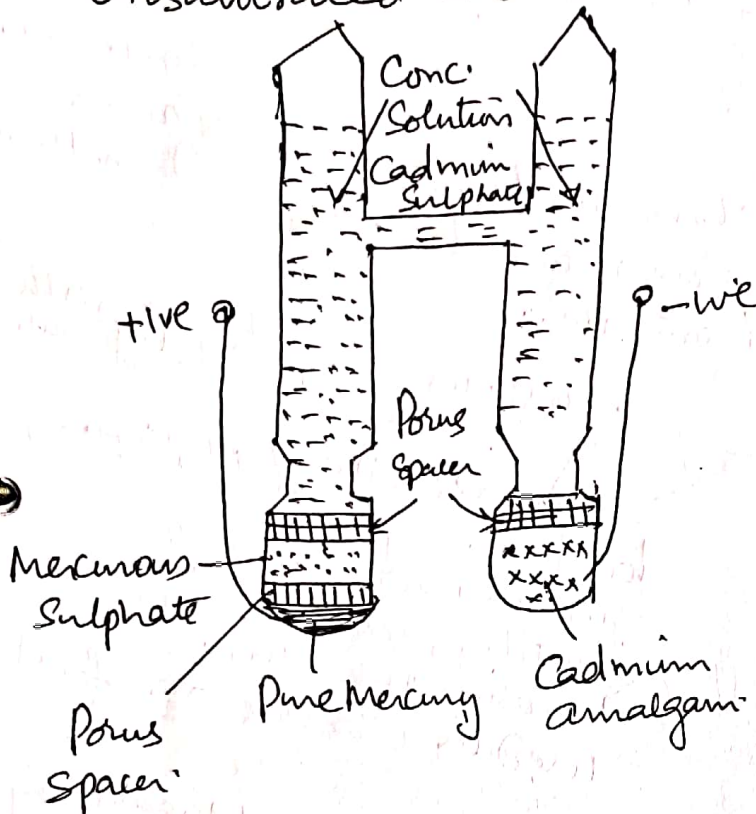 Conc.
Solution
Cadmium
Sulphate
+Ive
-ve
Porus
Spacer
Mercurous
Sulphate
Porus
Spacer
Pure Mercury
Cadmium
amalgam